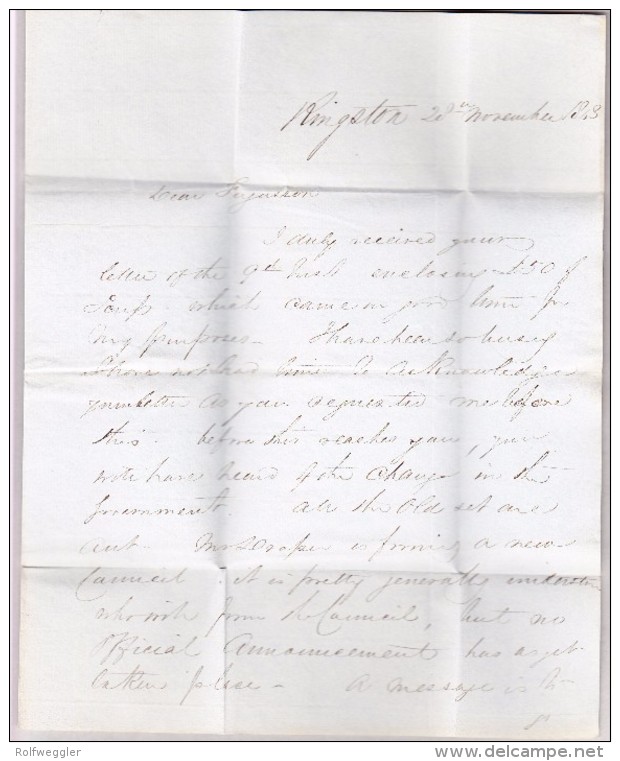 Kingston 28th November 1843
Dear Fergusson
I duly received your
letter of the 9th Inst enclosing £50 of
Scrip - which came in good time for
my purposes - I have been so busy
I have not had time to acknowledge
your letter as you requested me before
this. before this reaches you, you
will have heard of the change in the
Government. all the Old set are
out. Mr Draper is forming a new
Council - it is pretty generally understood
who will form the Council, but no
Official Announcement has as yet
taken place - A message is to
Rolfweggler
delcampe.net